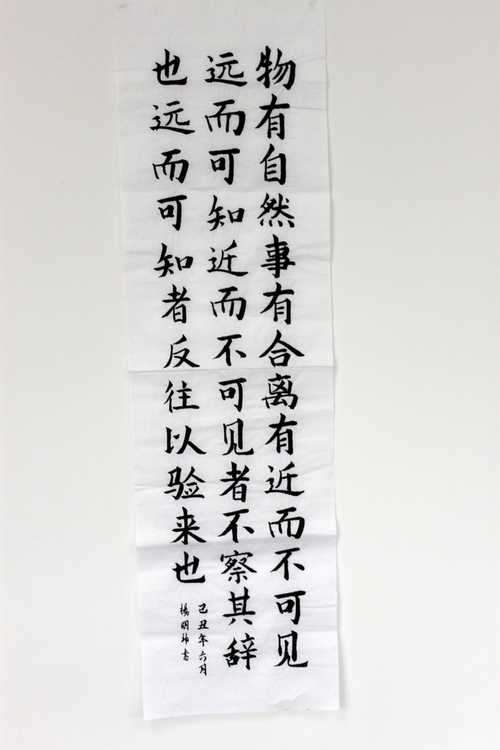 物有自然事有合离有近而不可见
远而可知近而不可见者不察其辞
也远而可知者反往以验来也
己丑年六月
杨明坤书